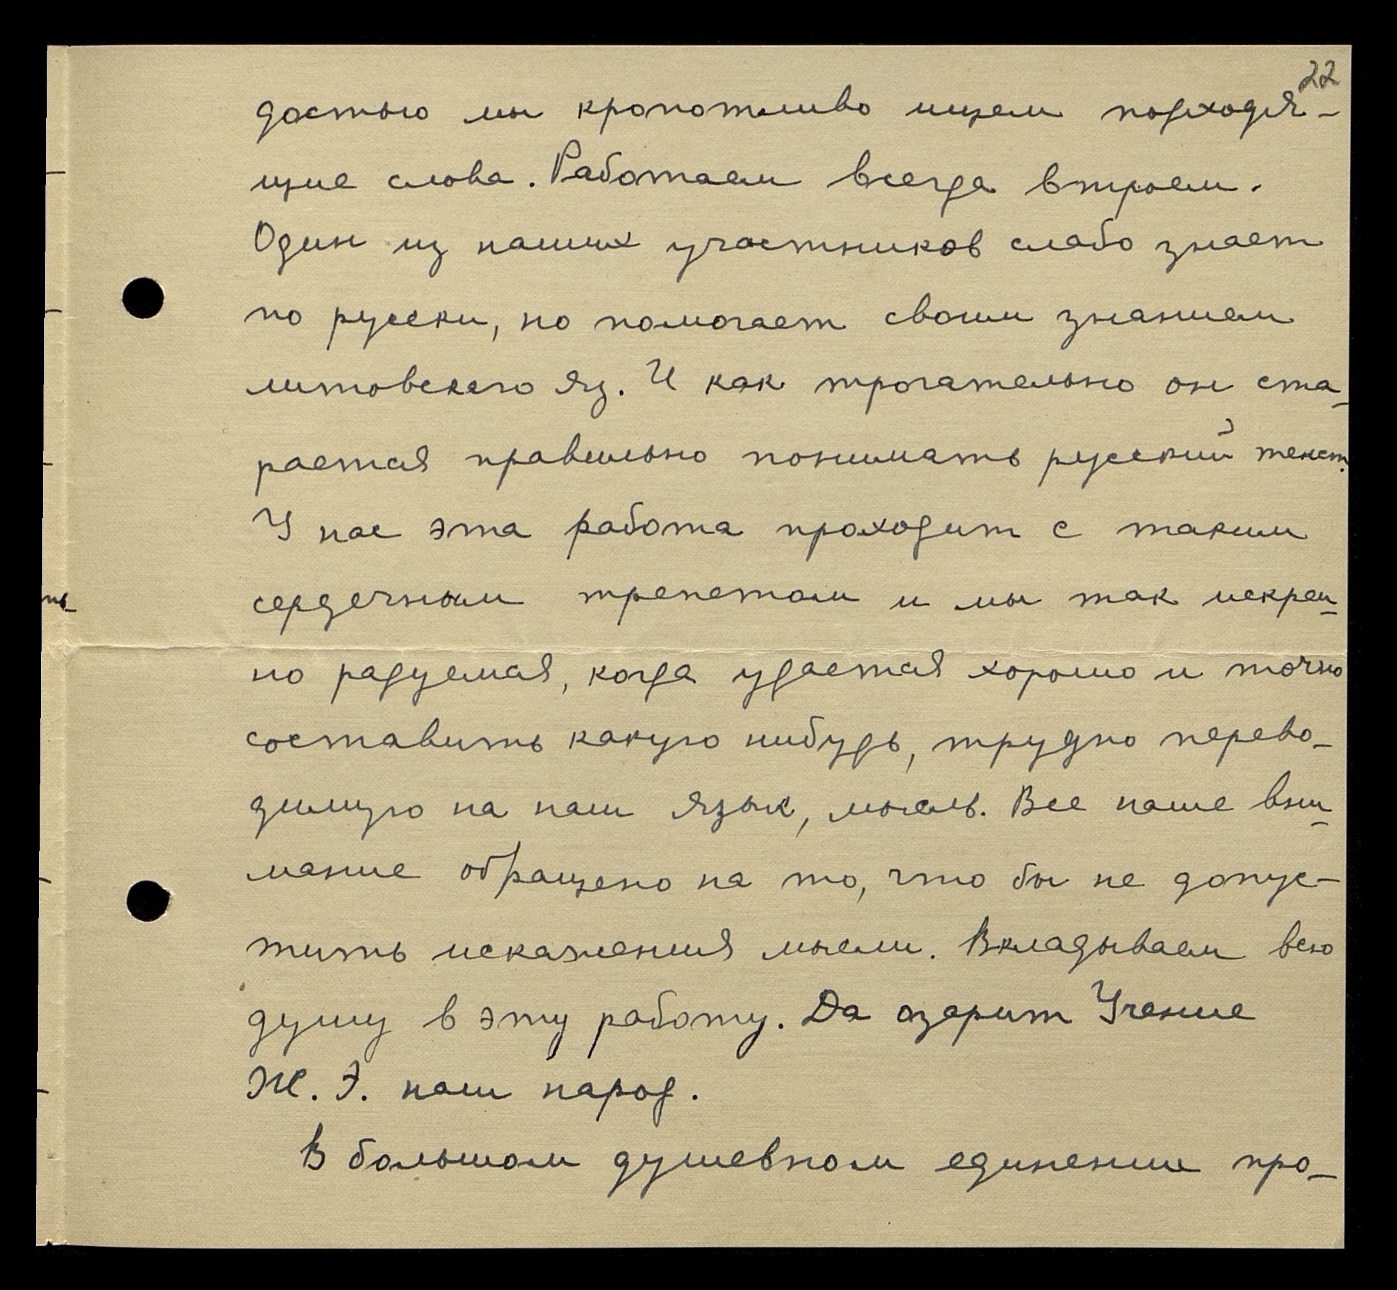 22
достью мы кропотливо ищем подходя-
щие слова. Работаем всегда втроем.
Один из наших участников слабо знает
по русски, но помогает своим знанием
литовского яз. И как трогательно он ста-
рается правильно понимать русский текст.
У нас эта работа проходит с таким
сердечным трепетом и мы так искрен-
но радуемся, когда удается хорошо и точно
составить какую нибудь, трудно перево-
димую на наш язык, мысль. Все наше вни-
мание обращено на то, что бы не допус-
тить искажения мысли. Вкладываем всю
душу в эту работу. Да озарит Учение
Ж. Э. наш народ.
В большом душевном единении про-